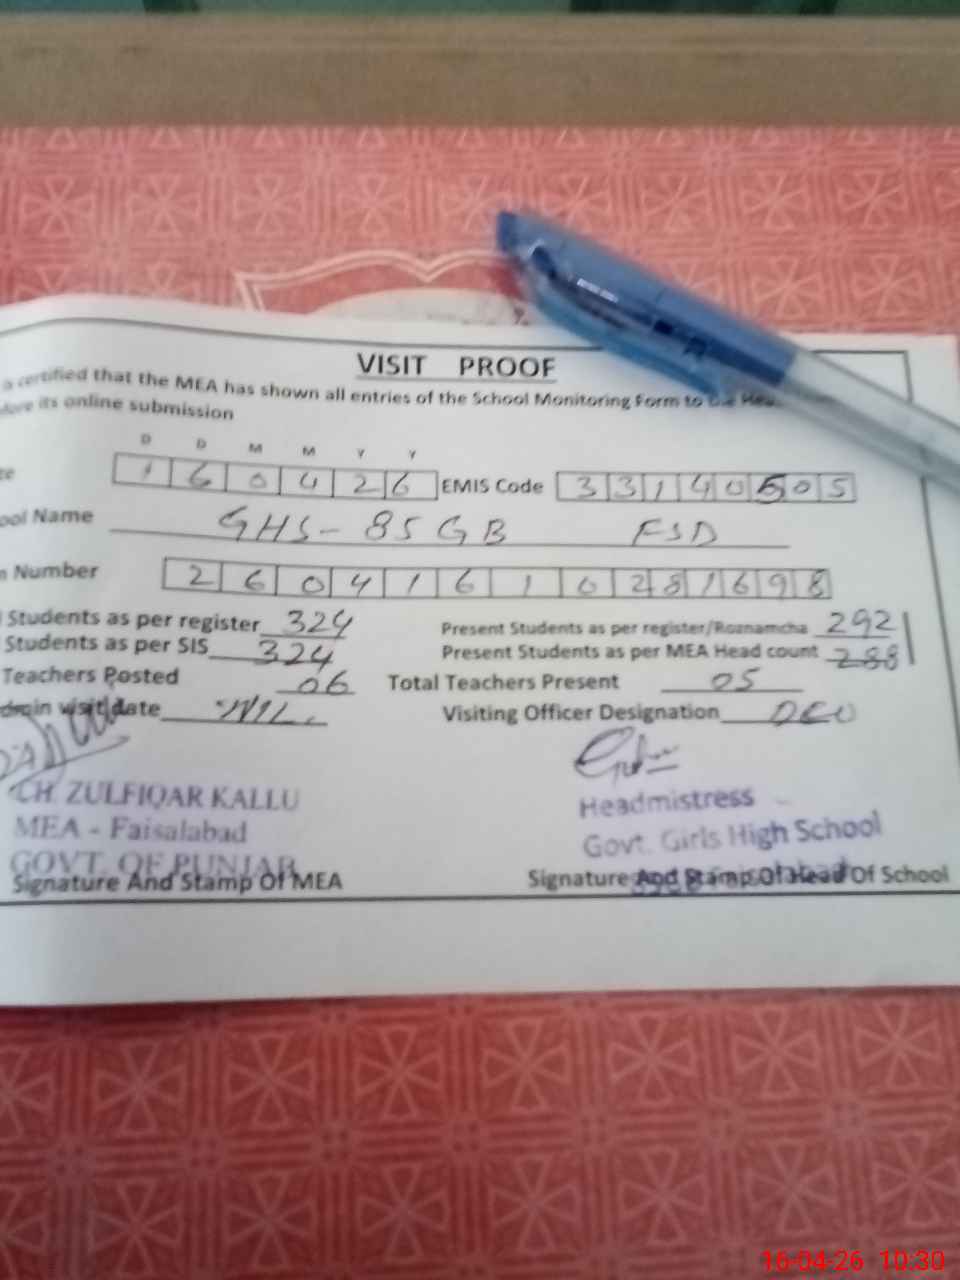 VISIT PROOF
certified that the MEA has shown all entries of the School Monitoring Form to
its online submission
D D M M Y Y
1 6 0 4 2 6 EMIS Code 3 3 1 4 0 5 0 5
Name GHS- 85 GB FSD
Number 2 6 0 4 1 6 1 0 2 8 1 6 9 8
Students as per register 324 Present Students as per register/Roznamcha 292
Students as per SIS 324 Present Students as per MEA Head count 288
Teachers Posted 06 Total Teachers Present 05
visit date NIL Visiting Officer Designation
CH. ZULFIQAR KALLU
MEA - Faisalabad
GOVT. OF PUNJAB
Signature And Stamp Of MEA
Headmistress
Govt. Girls High School
Signature And Stamp Of Head Of School
16-04-26 10:30